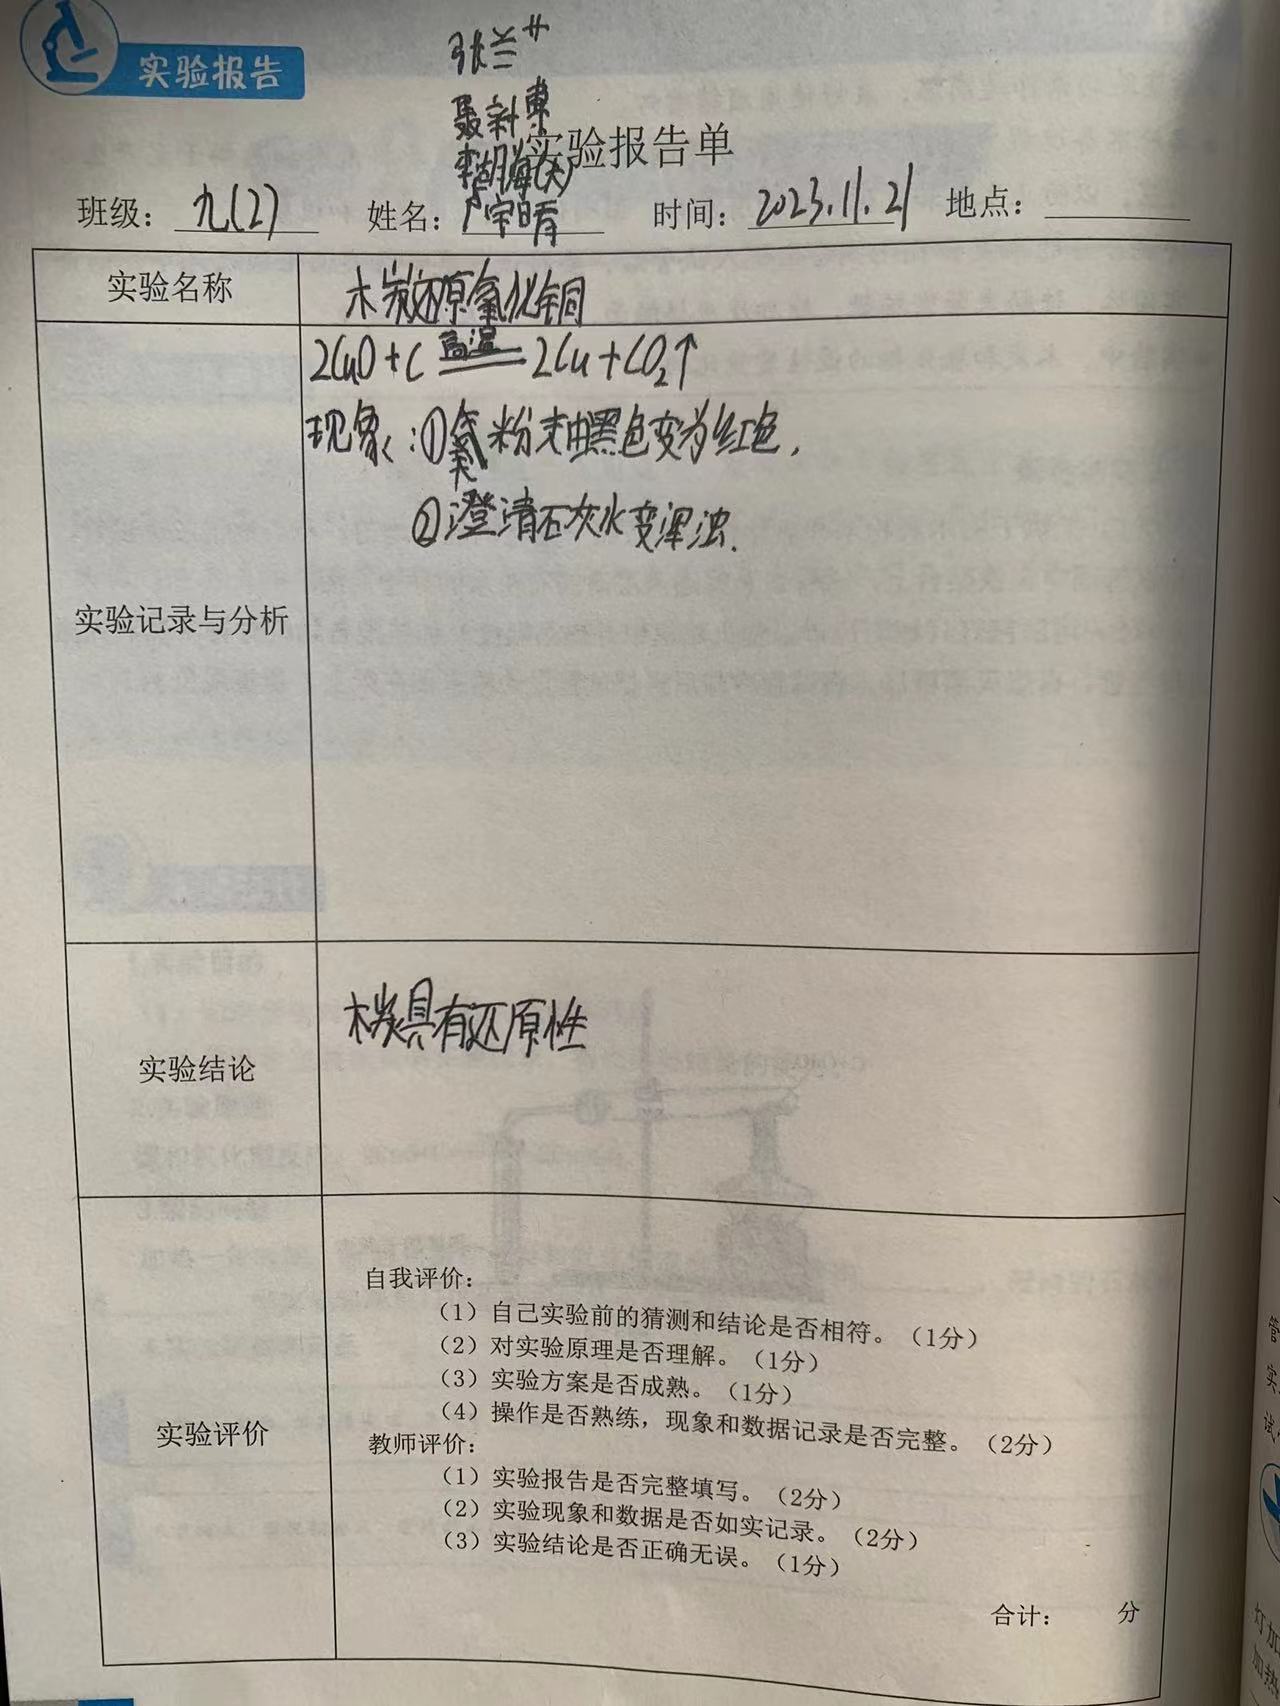 实验报告
张兰艹
聂新東
实验报告单
李湖海(天)
班级：九(2) 姓名：卢宇晴 时间：2023.11.21 地点：
实验名称 木炭还原氧化铜
2CuO+C 高温 2Cu+CO₂↑
现象：①粉末由黑色变为红色，
②澄清石灰水变浑浊.
实验记录与分析
木炭具有还原性
实验结论
自我评价：
（1）自己实验前的猜测和结论是否相符。（1分）
（2）对实验原理是否理解。（1分）
（3）实验方案是否成熟。（1分）
（4）操作是否熟练，现象和数据记录是否完整。（2分）
实验评价
教师评价：
（1）实验报告是否完整填写。（2分）
（2）实验现象和数据是否如实记录。（2分）
（3）实验结论是否正确无误。（1分）
合计： 分
管
实
试
灯加
加热